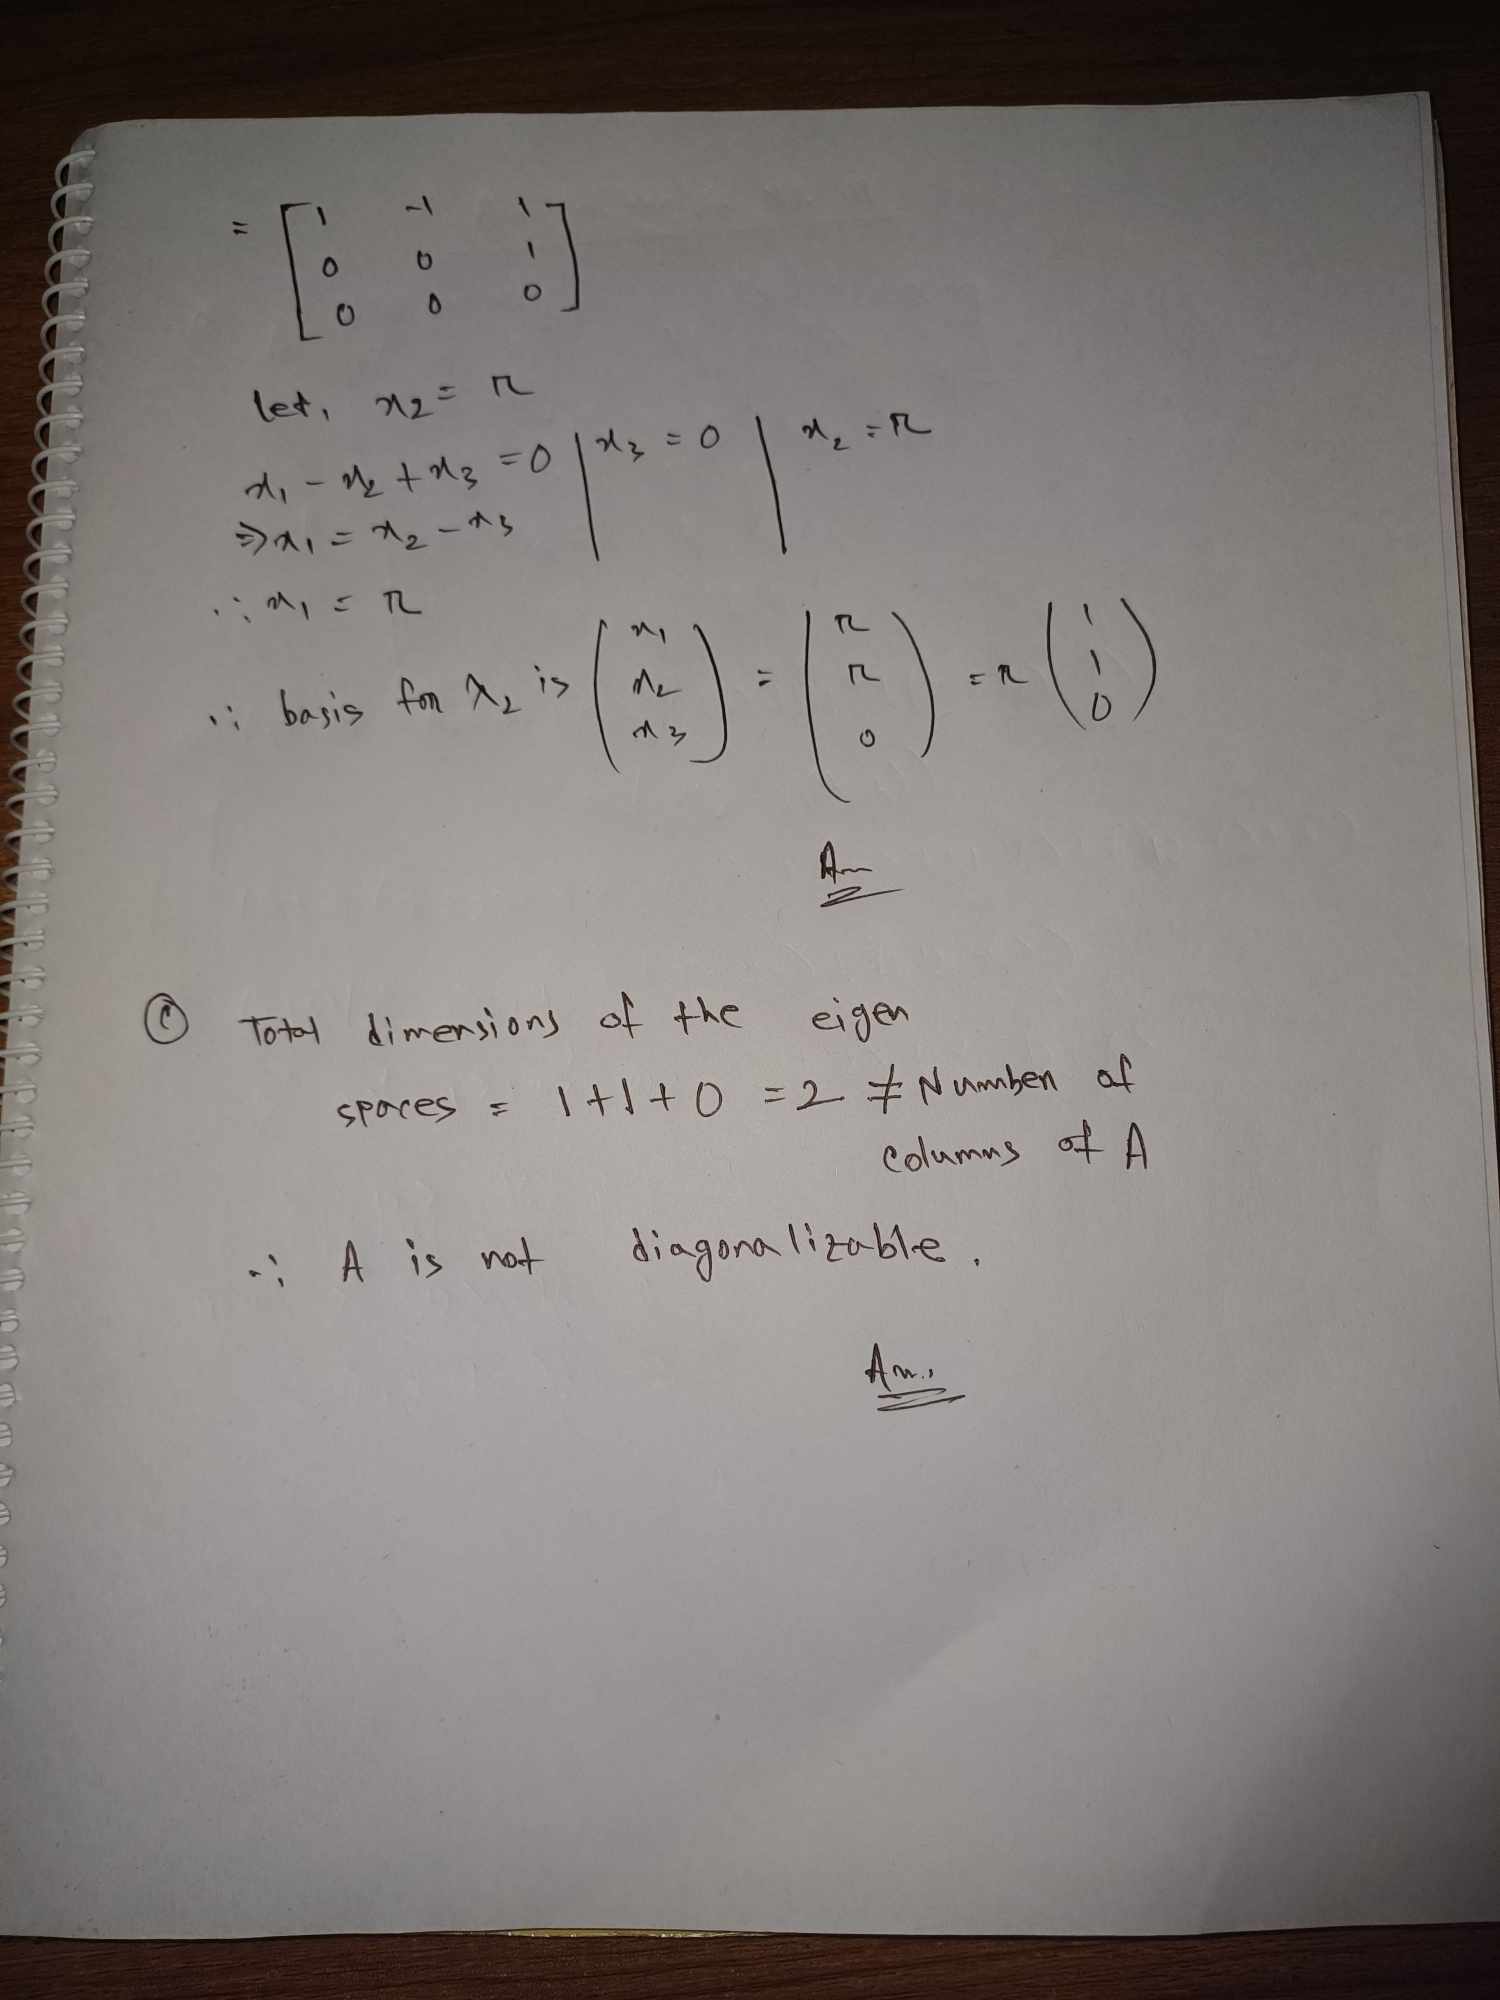 = [ 1 -1 1
0 0 1
0 0 0 ]
let, x₂ = r
x₁ - x₂ + x₃ = 0 | x₃ = 0 | x₂ = r
⇒ x₁ = x₂ - x₃
∴ x₁ = r
∴ basis for λ₂ is (x₁ x₂ x₃) = (r r 0) = r (1 1 0)
Ans
Ⓒ Total dimensions of the eigen
spaces = 1+1+0 = 2 ≠ Number of
columns of A
∴ A is not diagonalizable.
Ans.